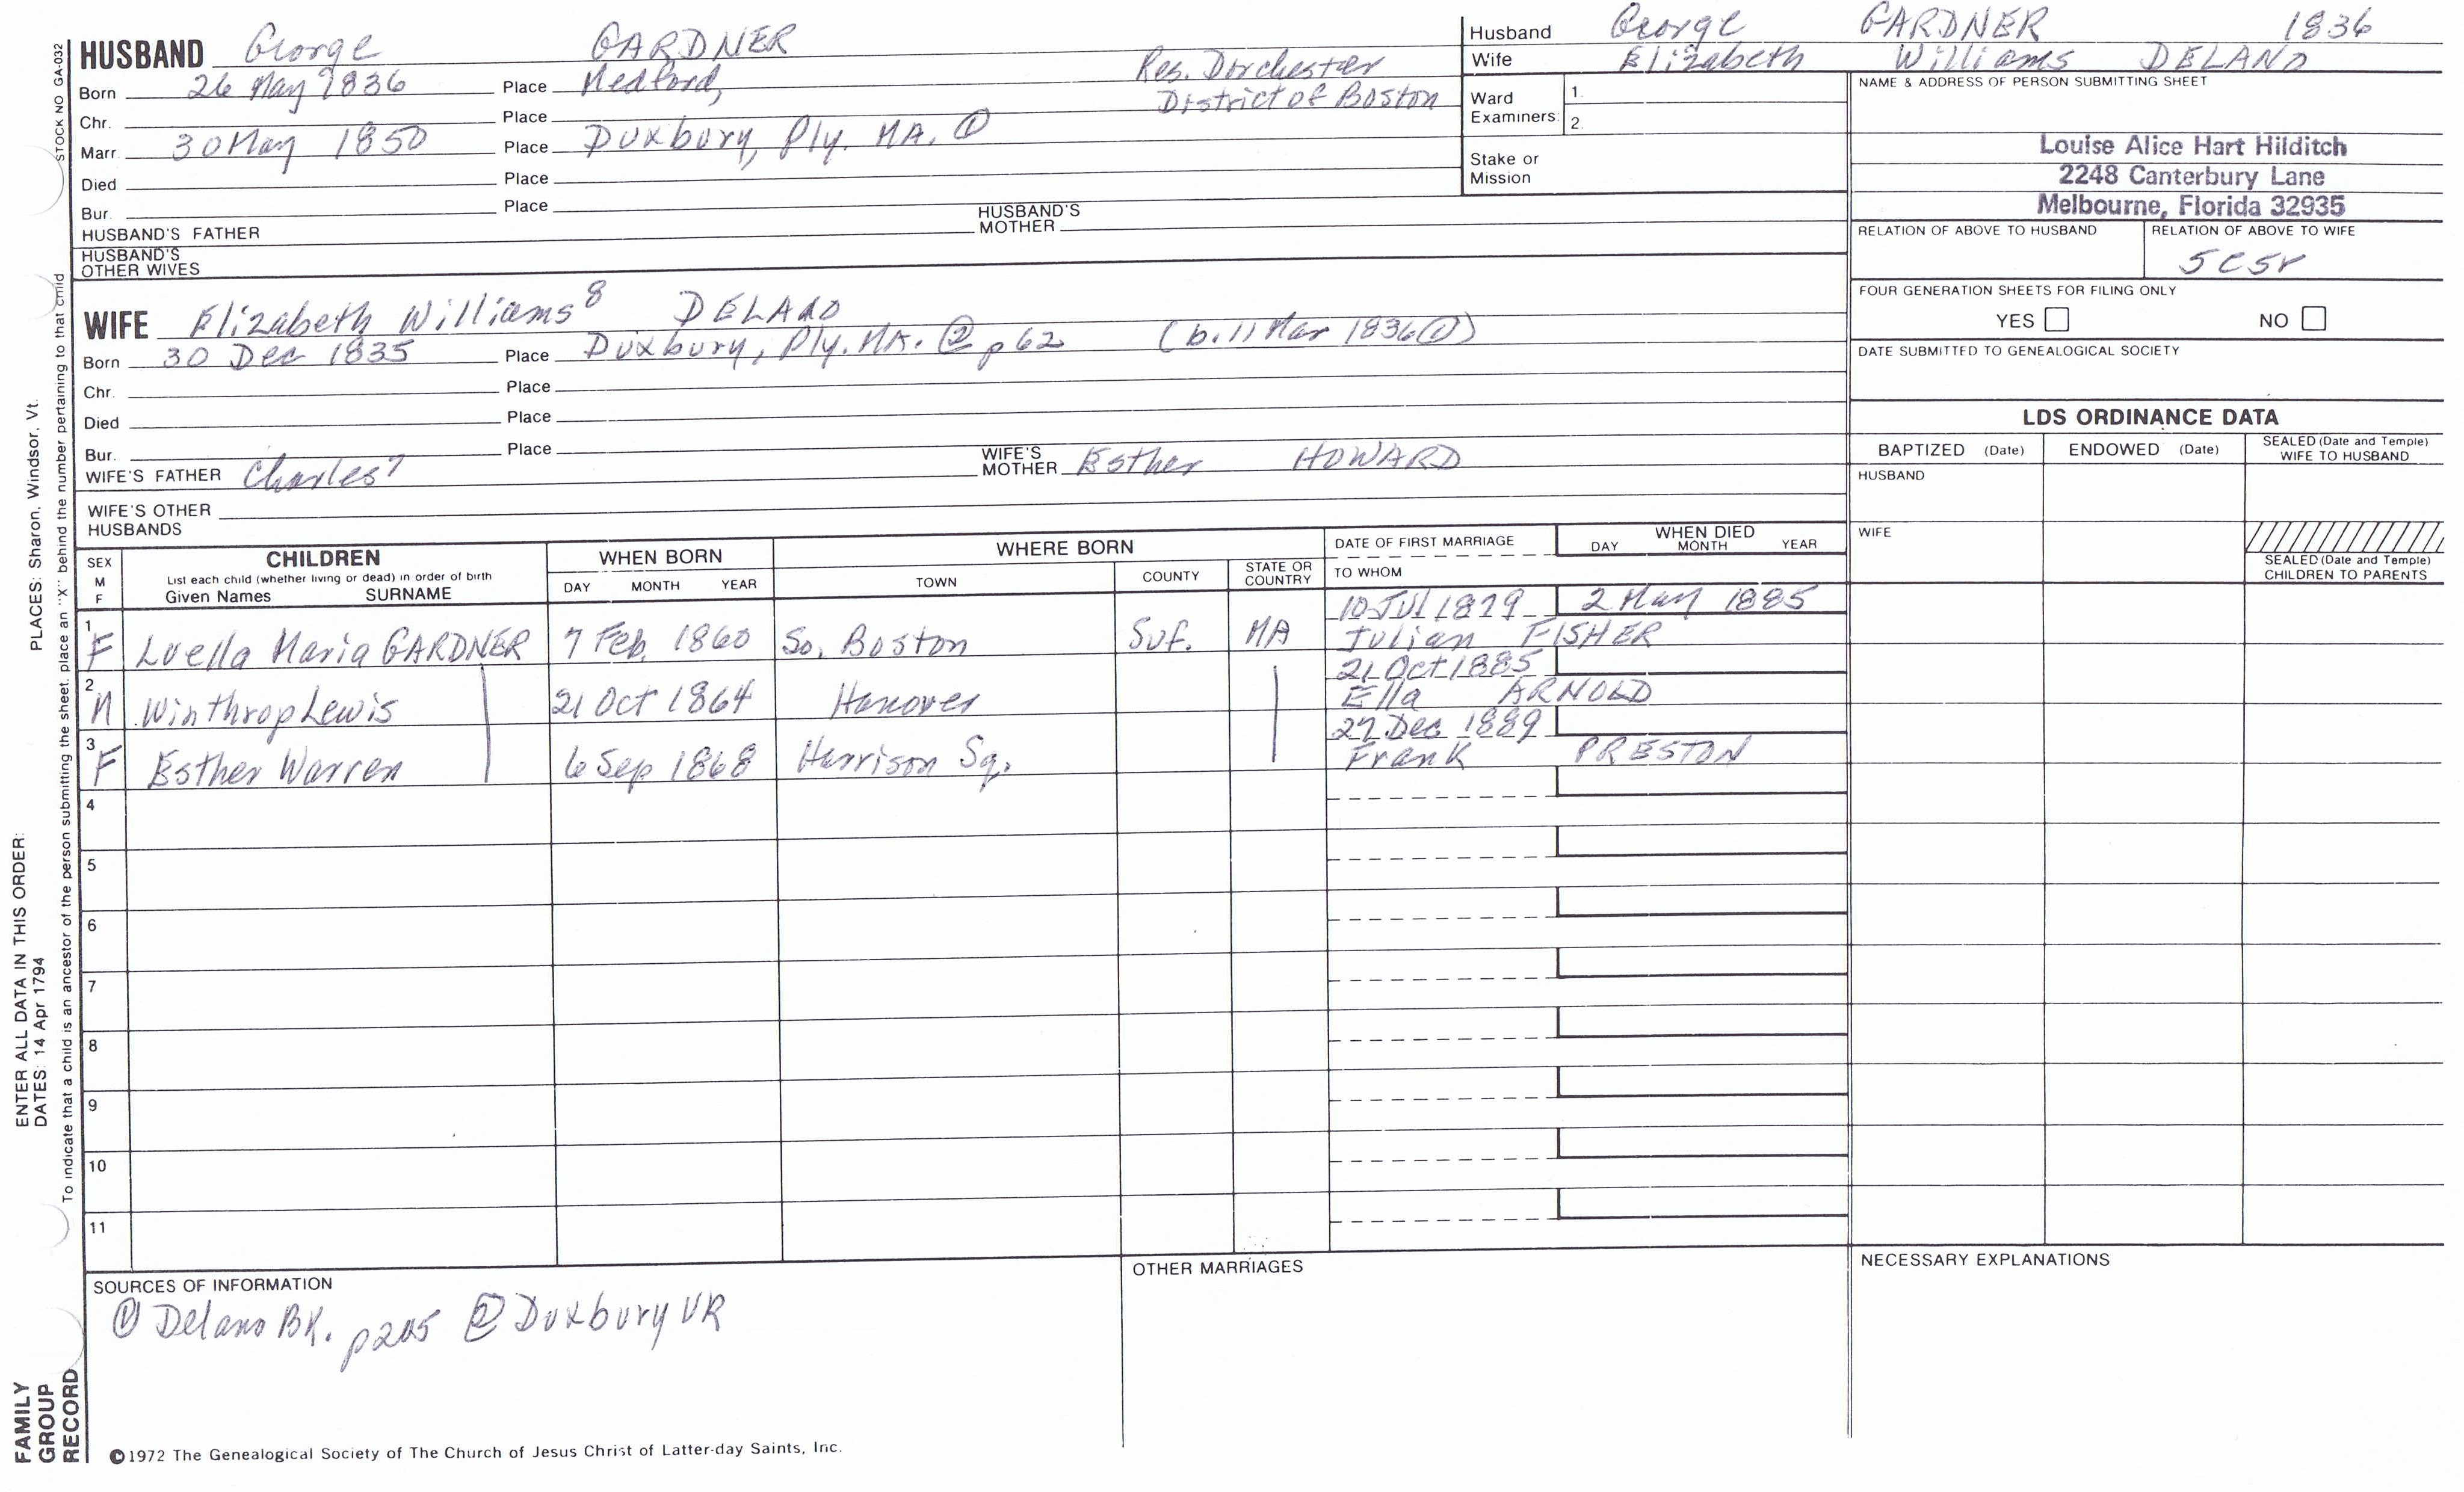 HUSBAND George GARDNER
Born 26 May 1836 Place Medford, Res. Dorchester
District of Boston
Chr. Place
Marr. 30 May 1850 Place Duxbury, Ply. MA. ①
Died Place
Bur. Place
HUSBAND'S FATHER HUSBAND'S MOTHER
HUSBAND'S OTHER WIVES
Husband George GARDNER 1836
Wife Elizabeth Williams DELANO
Ward Examiners: 1. 2.
Stake or Mission
NAME & ADDRESS OF PERSON SUBMITTING SHEET
Louise Alice Hart Hilditch
2248 Canterbury Lane
Melbourne, Florida 32935
RELATION OF ABOVE TO HUSBAND RELATION OF ABOVE TO WIFE
5C5r
FOUR GENERATION SHEETS FOR FILING ONLY
YES NO
DATE SUBMITTED TO GENEALOGICAL SOCIETY
WIFE Elizabeth Williams⁸ DELANO
Born 30 Dec 1835 Place Duxbury, Ply. MA. ② p 62 (b. 11 Mar 1836 ①)
Chr. Place
Died Place
Bur. Place
WIFE'S FATHER Charles⁷ WIFE'S MOTHER Esther HOWARD
WIFE'S OTHER HUSBANDS
LDS ORDINANCE DATA
BAPTIZED (Date) ENDOWED (Date) SEALED (Date and Temple) WIFE TO HUSBAND
HUSBAND
WIFE
SEALED (Date and Temple) CHILDREN TO PARENTS
SEX M F
CHILDREN
List each child (whether living or dead) in order of birth
Given Names SURNAME
WHEN BORN
DAY MONTH YEAR
WHERE BORN
TOWN COUNTY STATE OR COUNTRY
DATE OF FIRST MARRIAGE
TO WHOM
WHEN DIED
DAY MONTH YEAR
1 F Luella Maria GARDNER 7 Feb. 1860 So. Boston Suf. MA 10 Jul 1879 2 May 1885
Julian FISHER
2 M Winthrop Lewis 21 Oct 1864 Hanover 21 Oct 1885
Ella ARNOLD
3 F Esther Warren 6 Sep 1868 Harrison Sq. 27 Dec 1889
Frank PRESTON
4
5
6
7
8
9
10
11
SOURCES OF INFORMATION
① Delano BK. p205 ② Duxbury VR
OTHER MARRIAGES
NECESSARY EXPLANATIONS
©1972 The Genealogical Society of The Church of Jesus Christ of Latter-day Saints, Inc.
STOCK NO GA-032
To indicate that a child is an ancestor of the person submitting the sheet, place an "X" behind the number pertaining to that child
ENTER ALL DATA IN THIS ORDER:
DATES: 14 Apr 1794
PLACES: Sharon, Windsor, Vt.
FAMILY
GROUP
RECORD